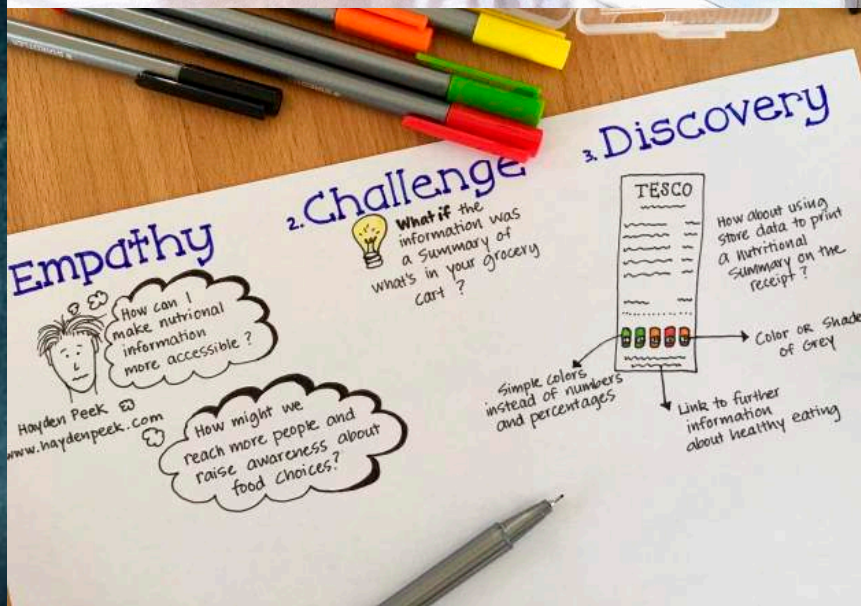 Empathy
How can I
make nutrional
information
more accessible ?
Hayden Peek
www.haydenpeek.com
How might we
reach more people and
raise awareness about
food choices?
2. Challenge
What if the
information was
a summary of
what's in your grocery
cart ?
3. Discovery
TESCO
How about using
store data to print
a nutritional
summary on the
receipt ?
Color OR Shade
of Grey
Simple colors
instead of numbers
and percentages
Link to further
information
about healthy eating